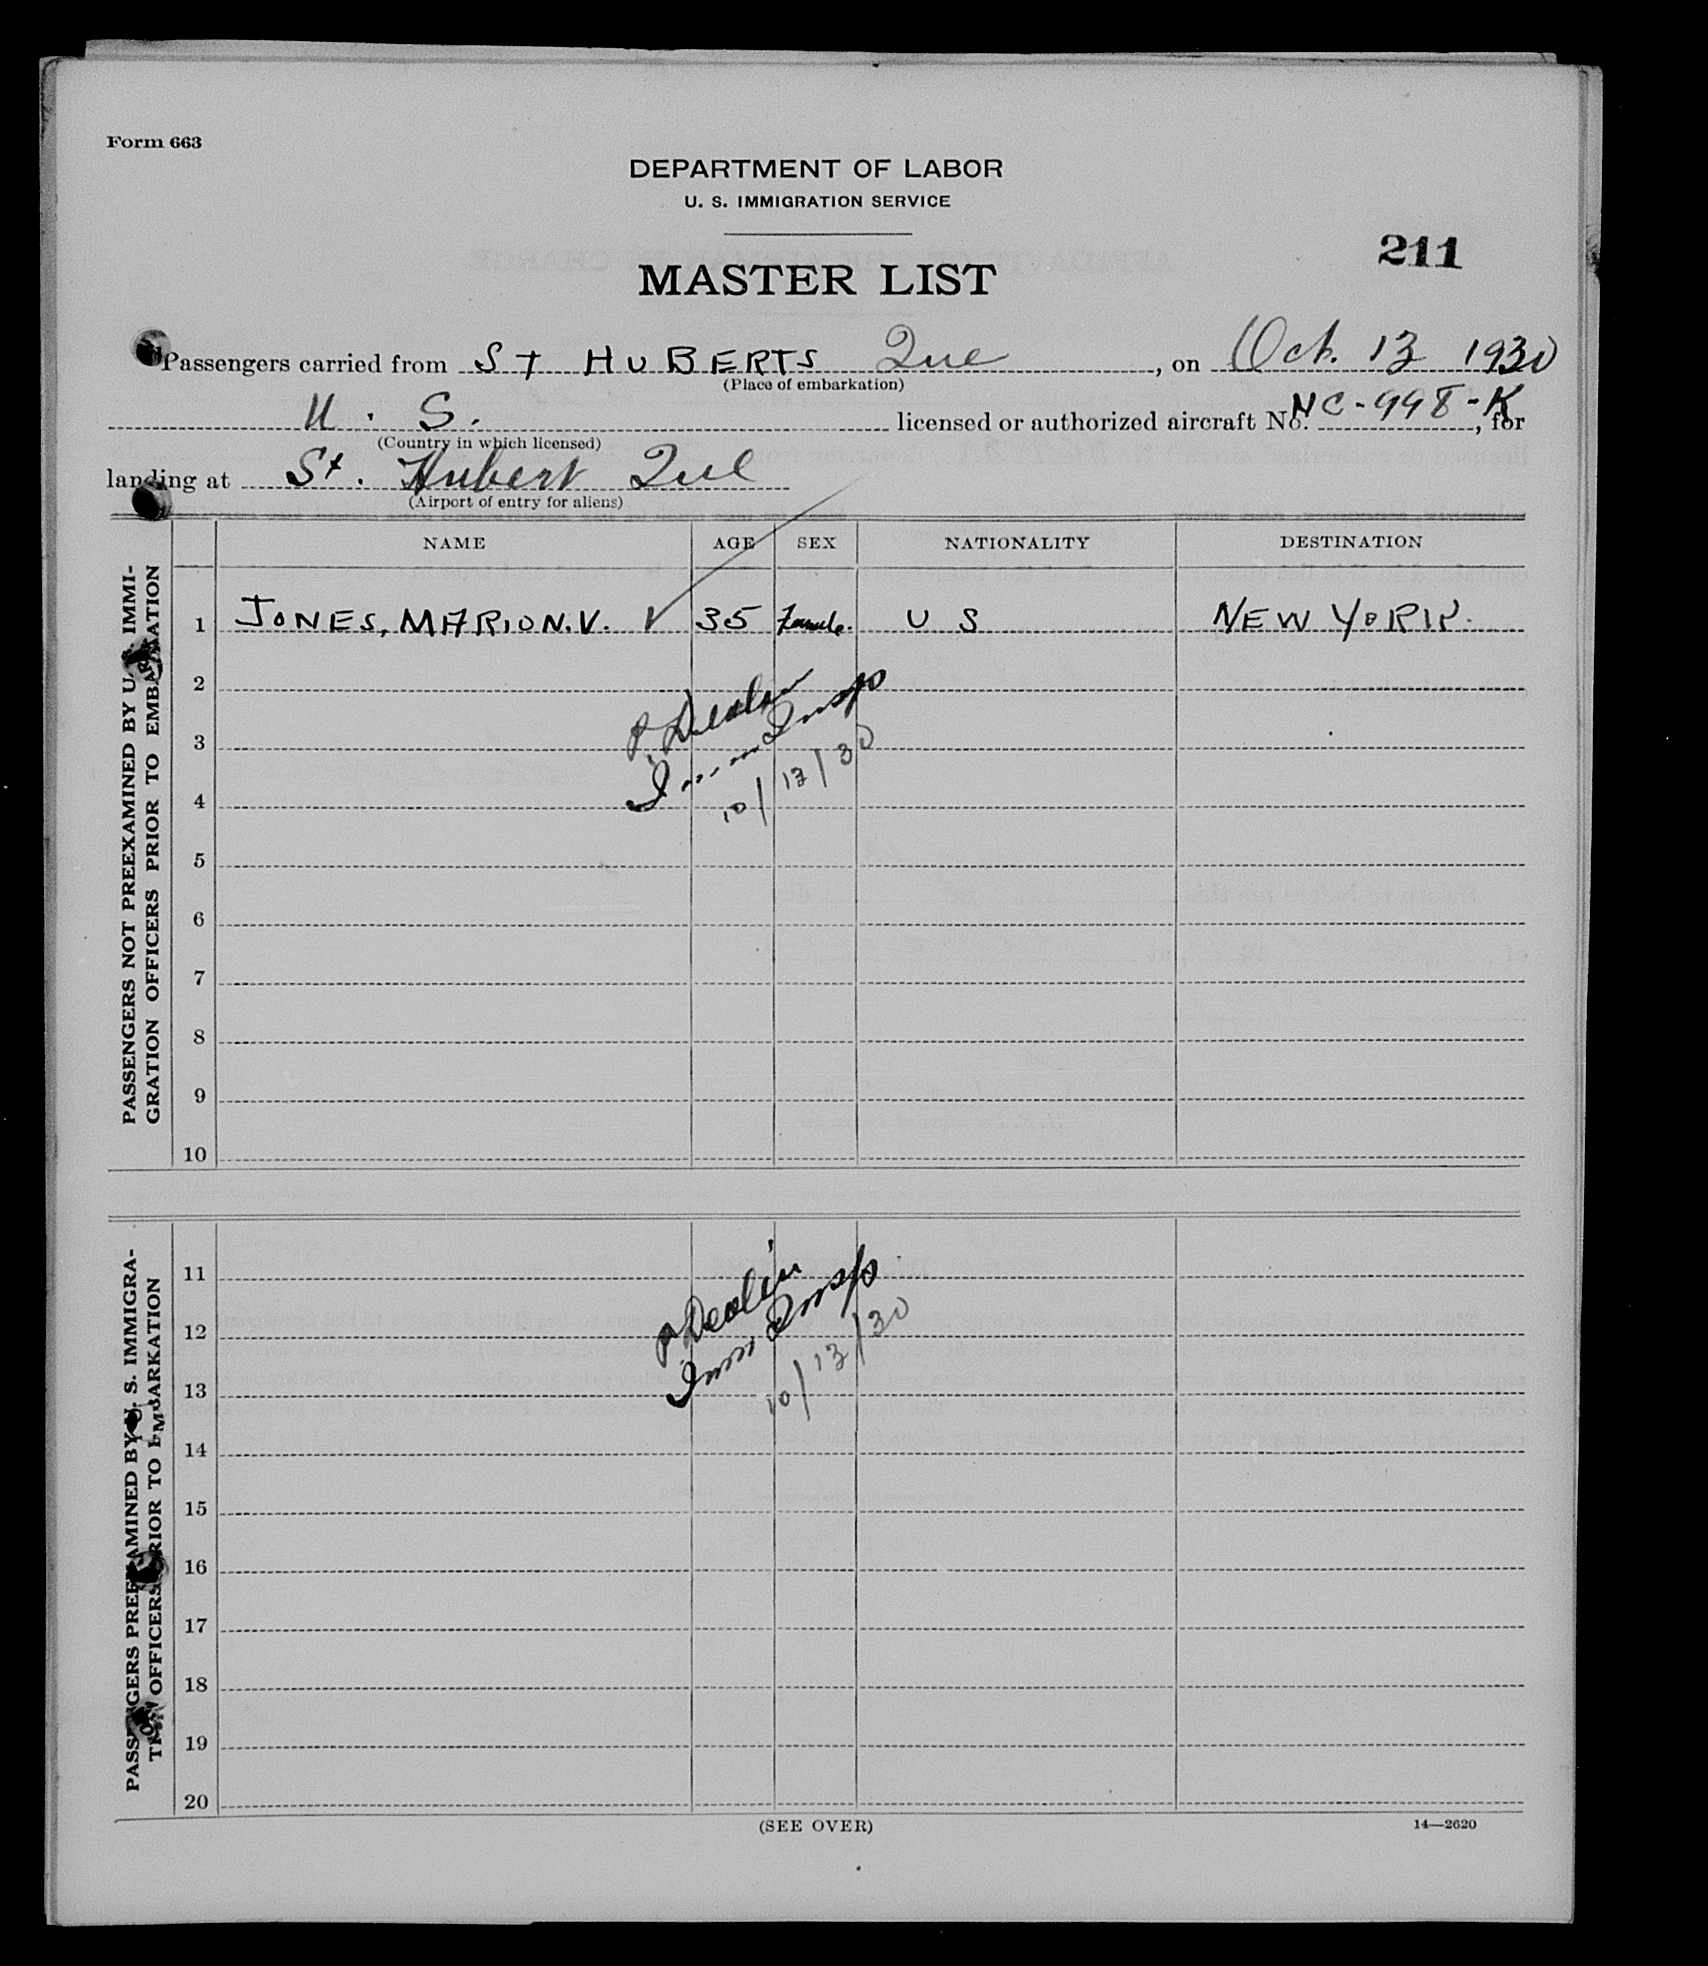 Form 663
DEPARTMENT OF LABOR
U. S. IMMIGRATION SERVICE
211
MASTER LIST
Passengers carried from ST HUBERTS Que, on Oct. 13 1930
(Place of embarkation)
U. S. licensed or authorized aircraft No. NC-998-K, for
(Country in which licensed)
landing at St. Hubert Que
(Airport of entry for aliens)
NAME AGE SEX NATIONALITY DESTINATION
PASSENGERS NOT PREEXAMINED BY U. S. IMMI-
GRATION OFFICERS PRIOR TO EMBARKATION
1 JONES, MARION. V. 35 Female. U S NEW YORK.
2
3
4
P. Devlin
Imm Insp
10/13/30
5
6
7
8
9
10
PASSENGERS PREEXAMINED BY U. S. IMMIGRA-
TION OFFICERS PRIOR TO EMBARKATION
11
12
13
P. Devlin
Imm Insp
10/13/30
14
15
16
17
18
19
20
(SEE OVER)
14—2620